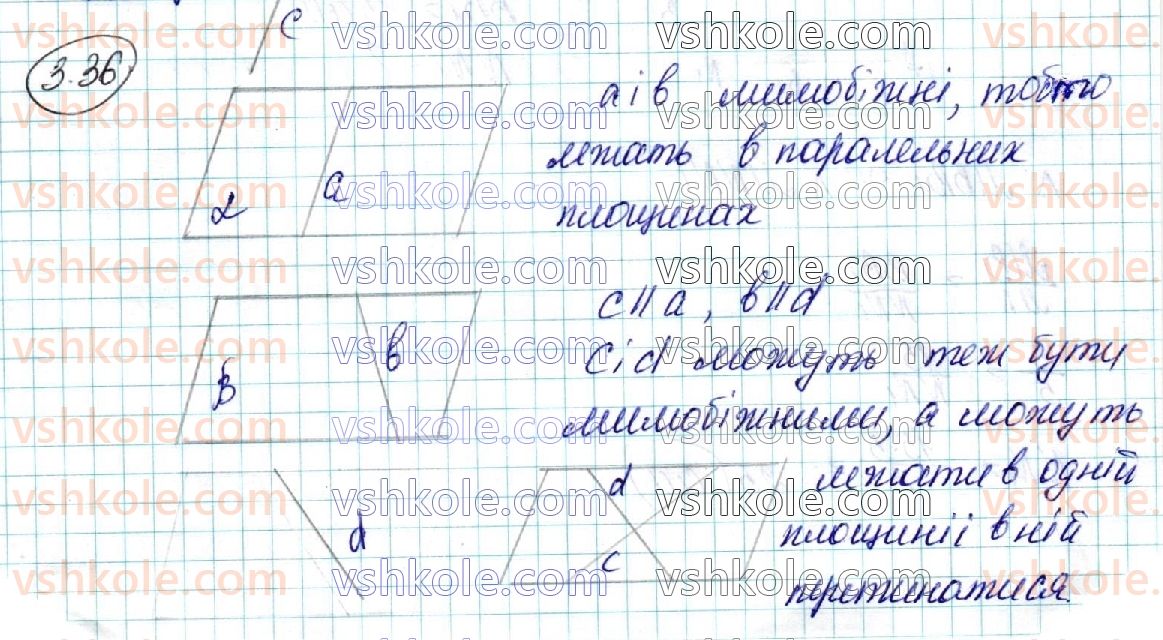 3.36
c
а і в мимобіжні, тобто
лежать в паралельних
площинах
α a
c || a, в || d
β в
c і d можуть теж бути
мимобіжними, а можуть
лежати в одній
площині і в ній
перетинатися.
d
d
c
vshkole.com